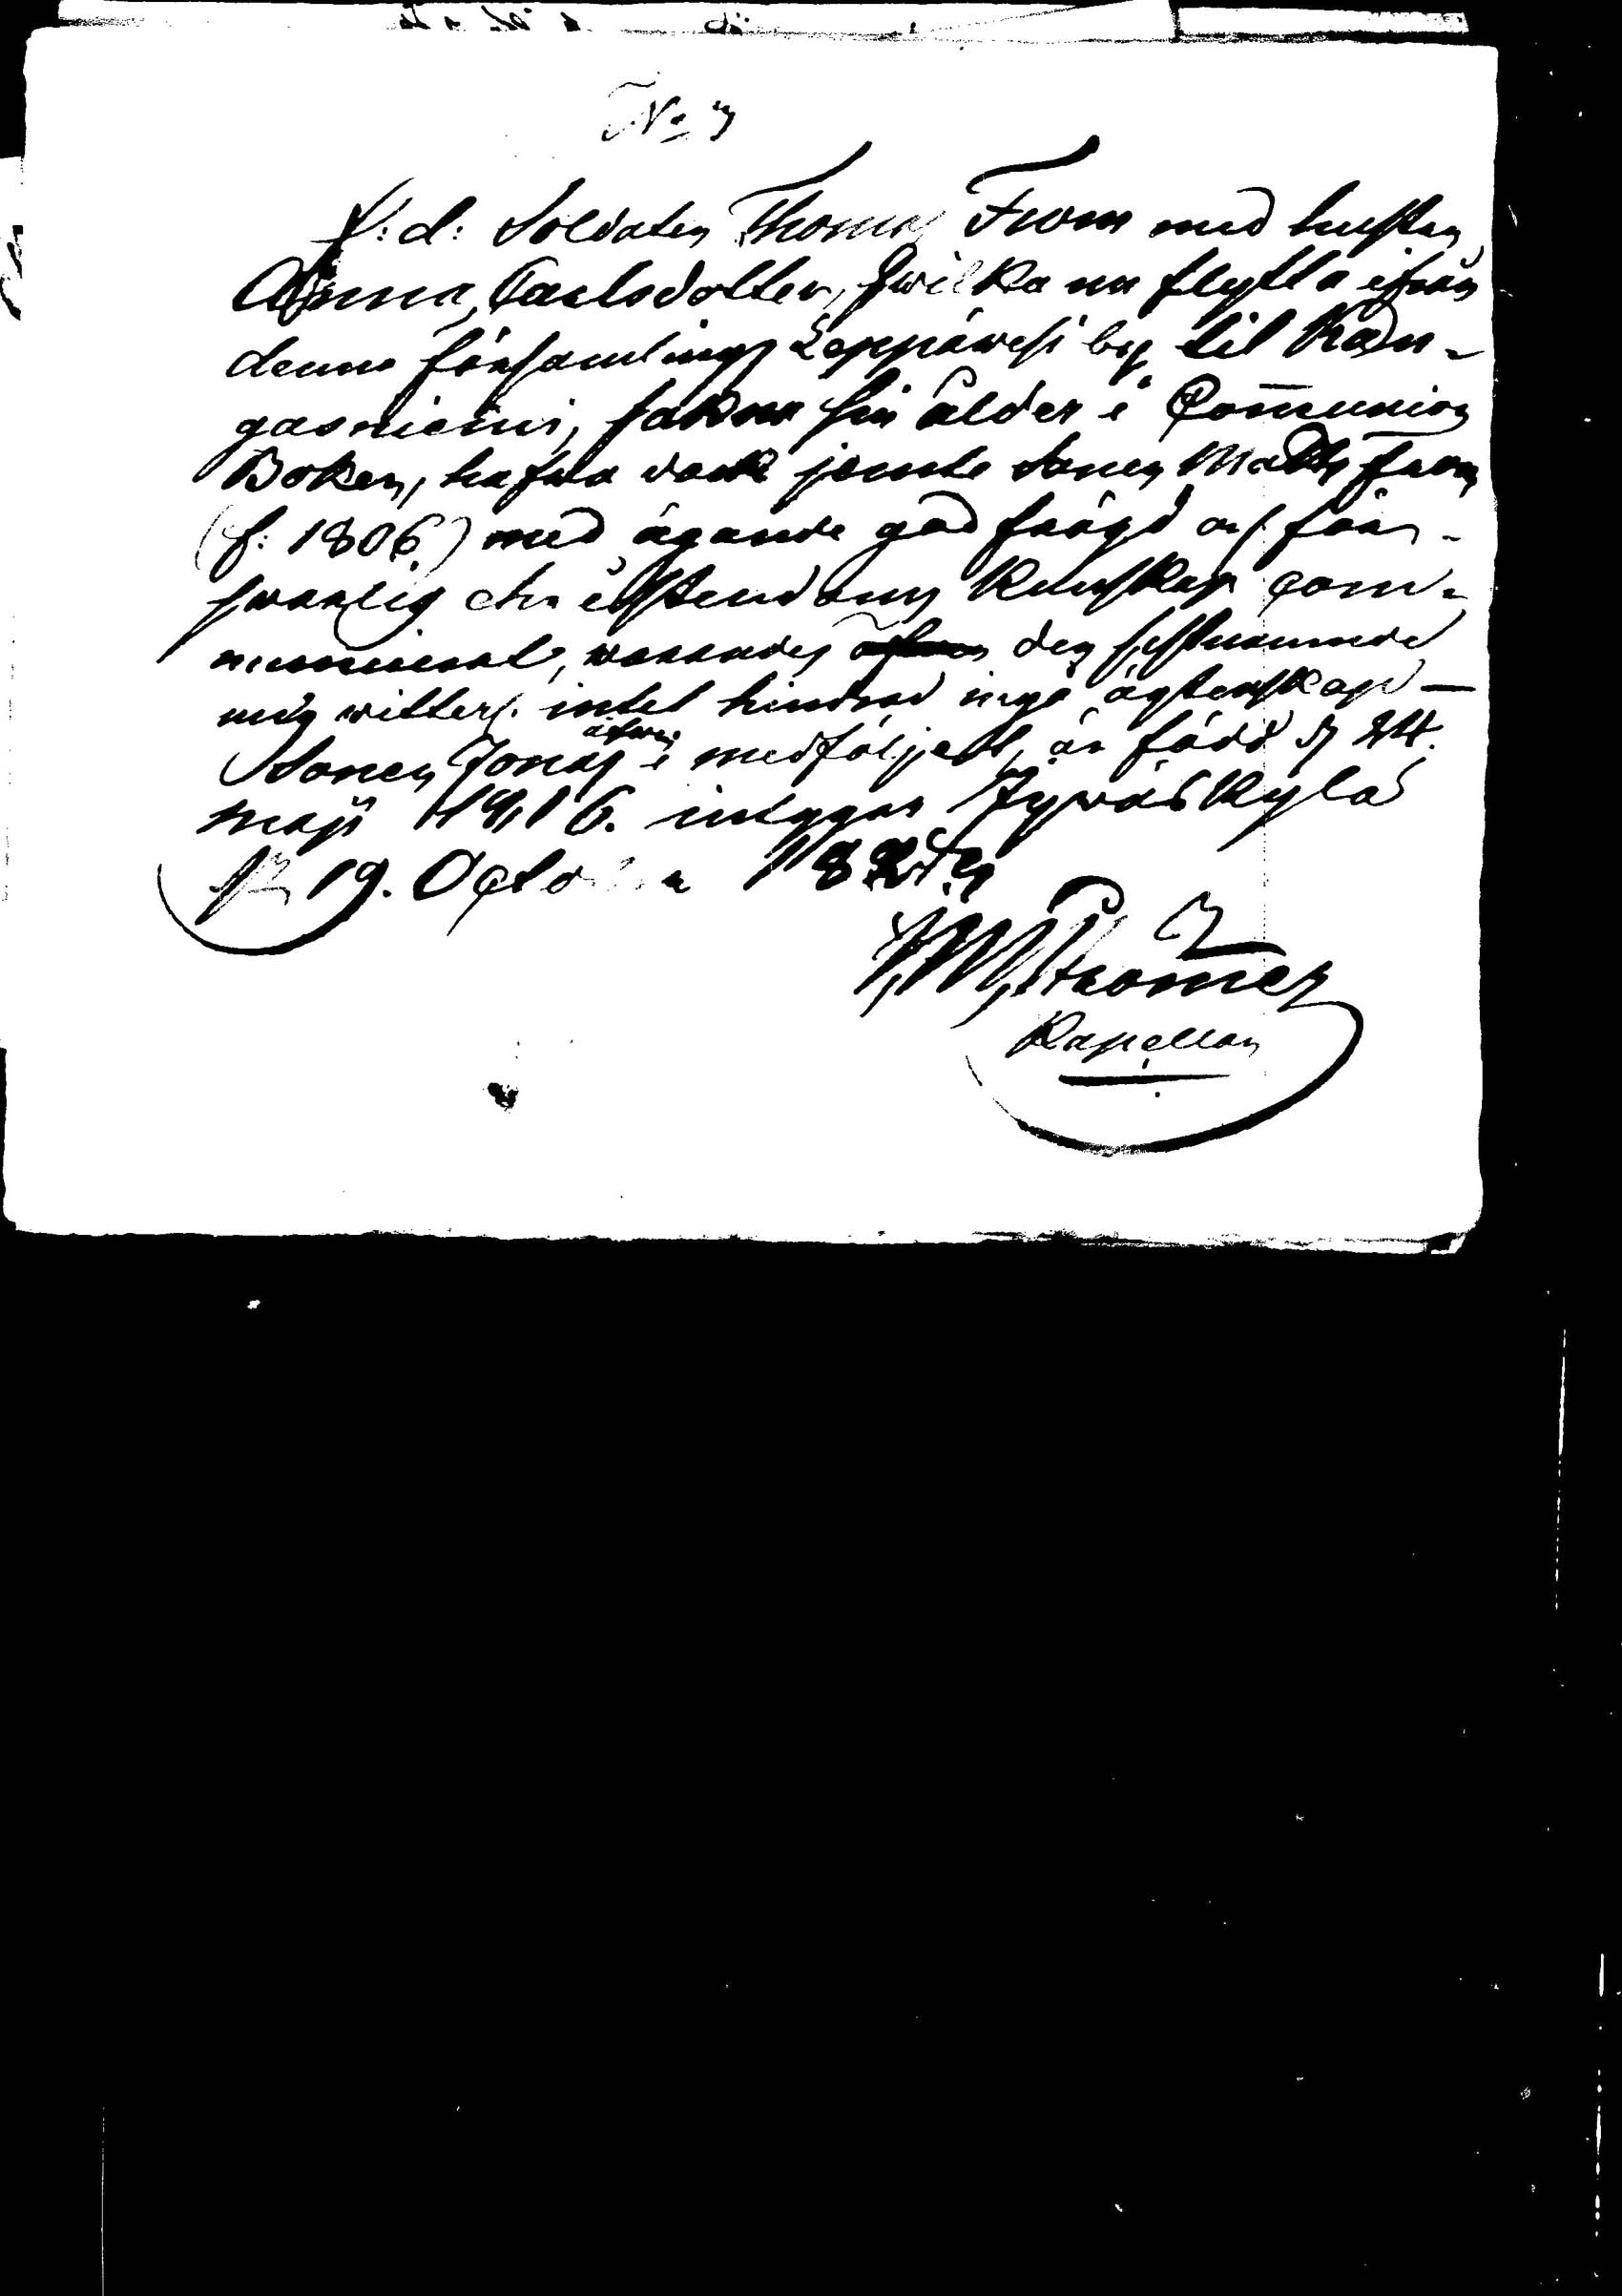 No 7
f: d: Soldaten Thomas From med hustrun
Anna Carlsdotter, hwilka nu flytta ifrån
denna församlings Leppäwesi by til Kan-
gasniemi, sakna sin ålder i Com̄union
Boken, hafwa dock jemte Sonen Matts From
(f: 1806) med ägande god frägd och för-
swarlig christendoms kunskap com-
municerat, warandes den sistnämnde
mig witterl. intet hindrad ingå ägtenskap —
Sonen Jonas äfwen medföljer, är född d 24.
maji 1816. intygar Jywäskylä
d 19. October
Kapellan